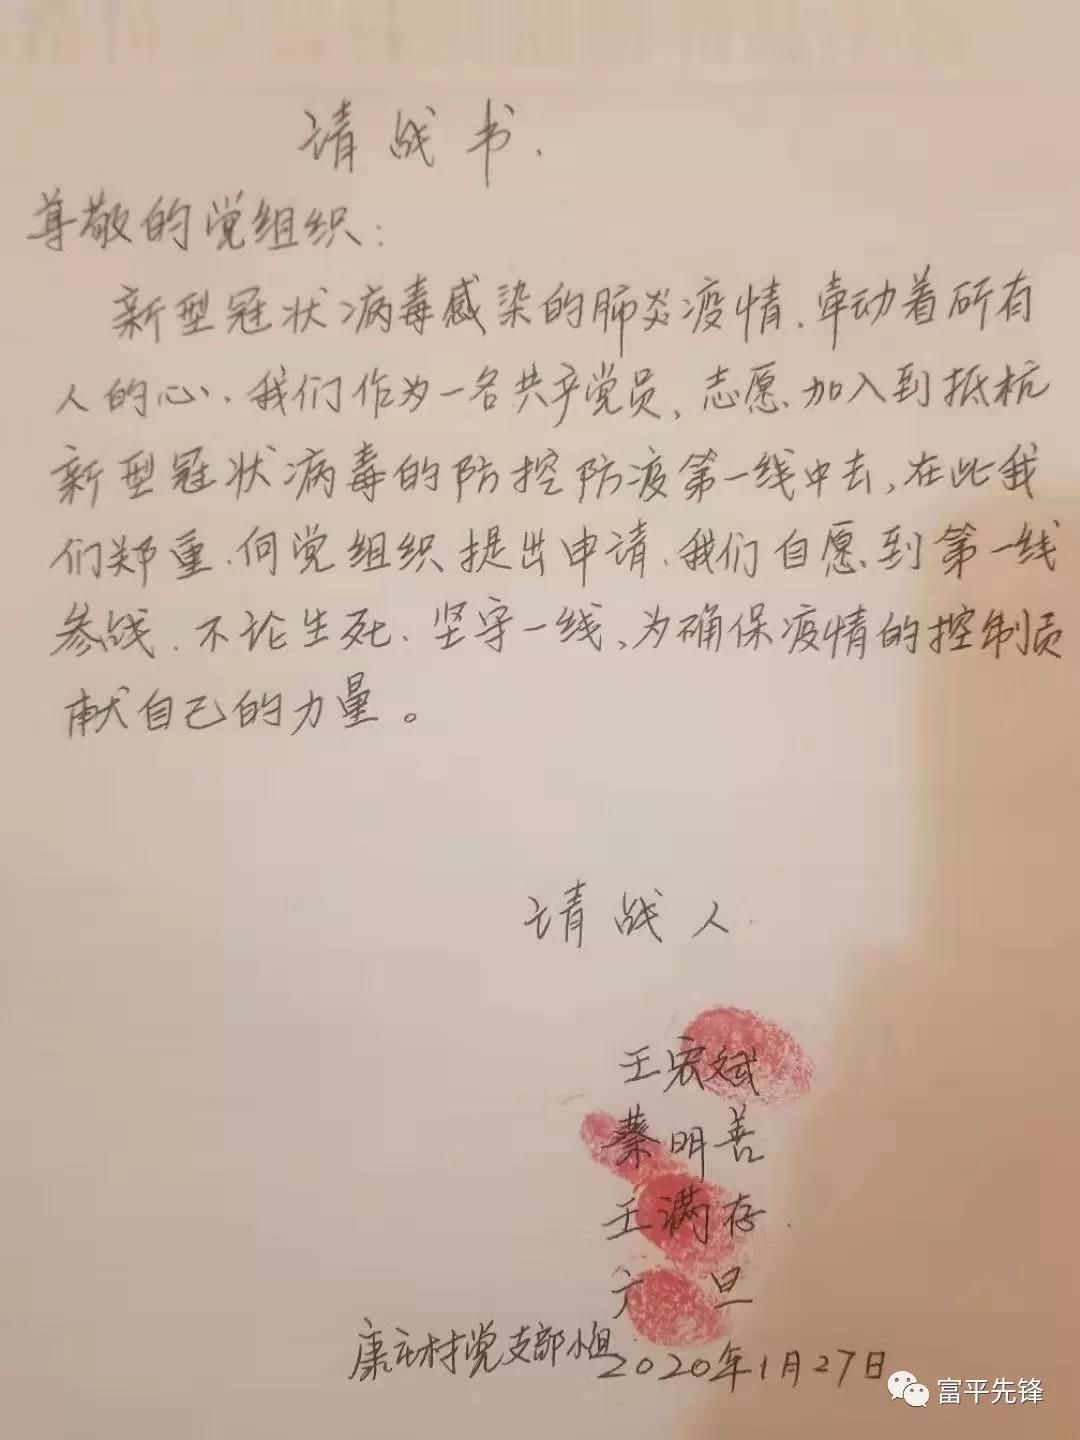 请战书.
尊敬的党组织:
新型冠状病毒感染的肺炎疫情、牵动着所有
人的心、我们作为一名共产党员,志愿加入到抵抗
新型冠状病毒的防控防疫第一线中去,在此我
们郑重、向党组织提出申请、我们自愿到第一线
参战、不论生死、坚守一线、为确保疫情的控制贡
献自己的力量。
请战人
王宏斌
蔡明善
王满存
旦
康庄村党支部小组2020年1月27日
富平先锋